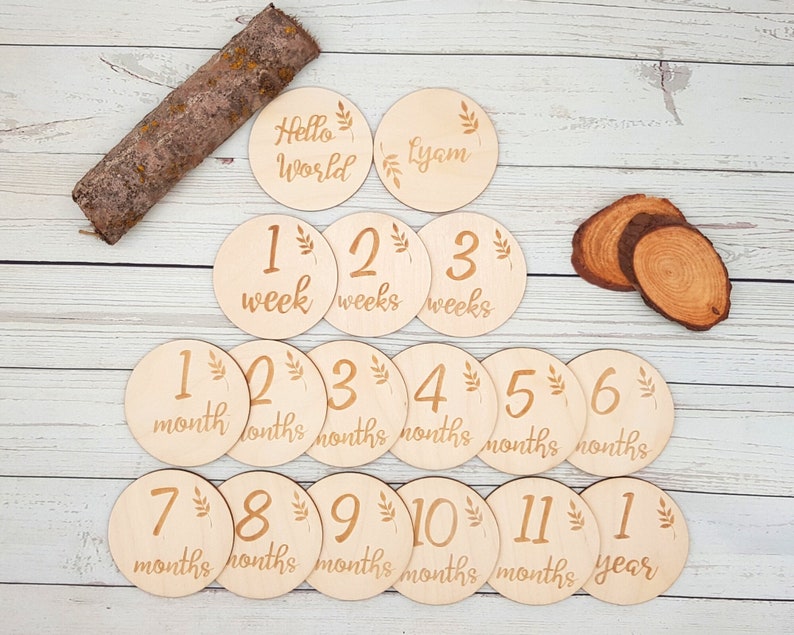 Hello
World
Lyam
1
week
2
weeks
3
weeks
1
month
2
months
3
months
4
months
5
months
6
months
7
months
8
months
9
months
10
months
11
months
1
year